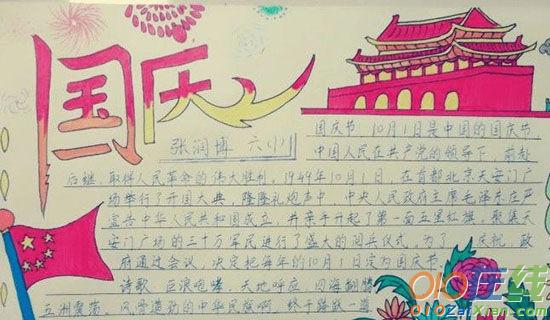 国庆
张润博 六(1)
国庆节 10月1日是中国的国庆节,
中国人民在共产党的领导下,前赴
后继,取得人民革命的伟大胜利,1949年10月1日,在首都北京天安门广
场举行了开国大典,隆隆礼炮声中,中央人民政府主席毛泽东庄严
宣告中华人民共和国成立,并亲手升起了第一面五星红旗,聚集天
安门广场的三十万军民进行了盛大的阅兵仪式,为了 庆祝,政
府通过会议 决定把每年的10月1日定为国庆节
诗歌 巨浪咆哮,天地呼应 四海翻腾
五洲震荡, 的中华民族啊 终于踏
010在线
010ZaiXian.com